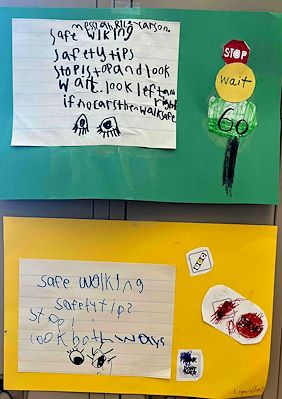 safe wlking
safety tips
stop is top and look
wait. look left and
right
if no cars then walk safe
STOP
wait
GO
safe walking
safety tip?
stop!
look both ways